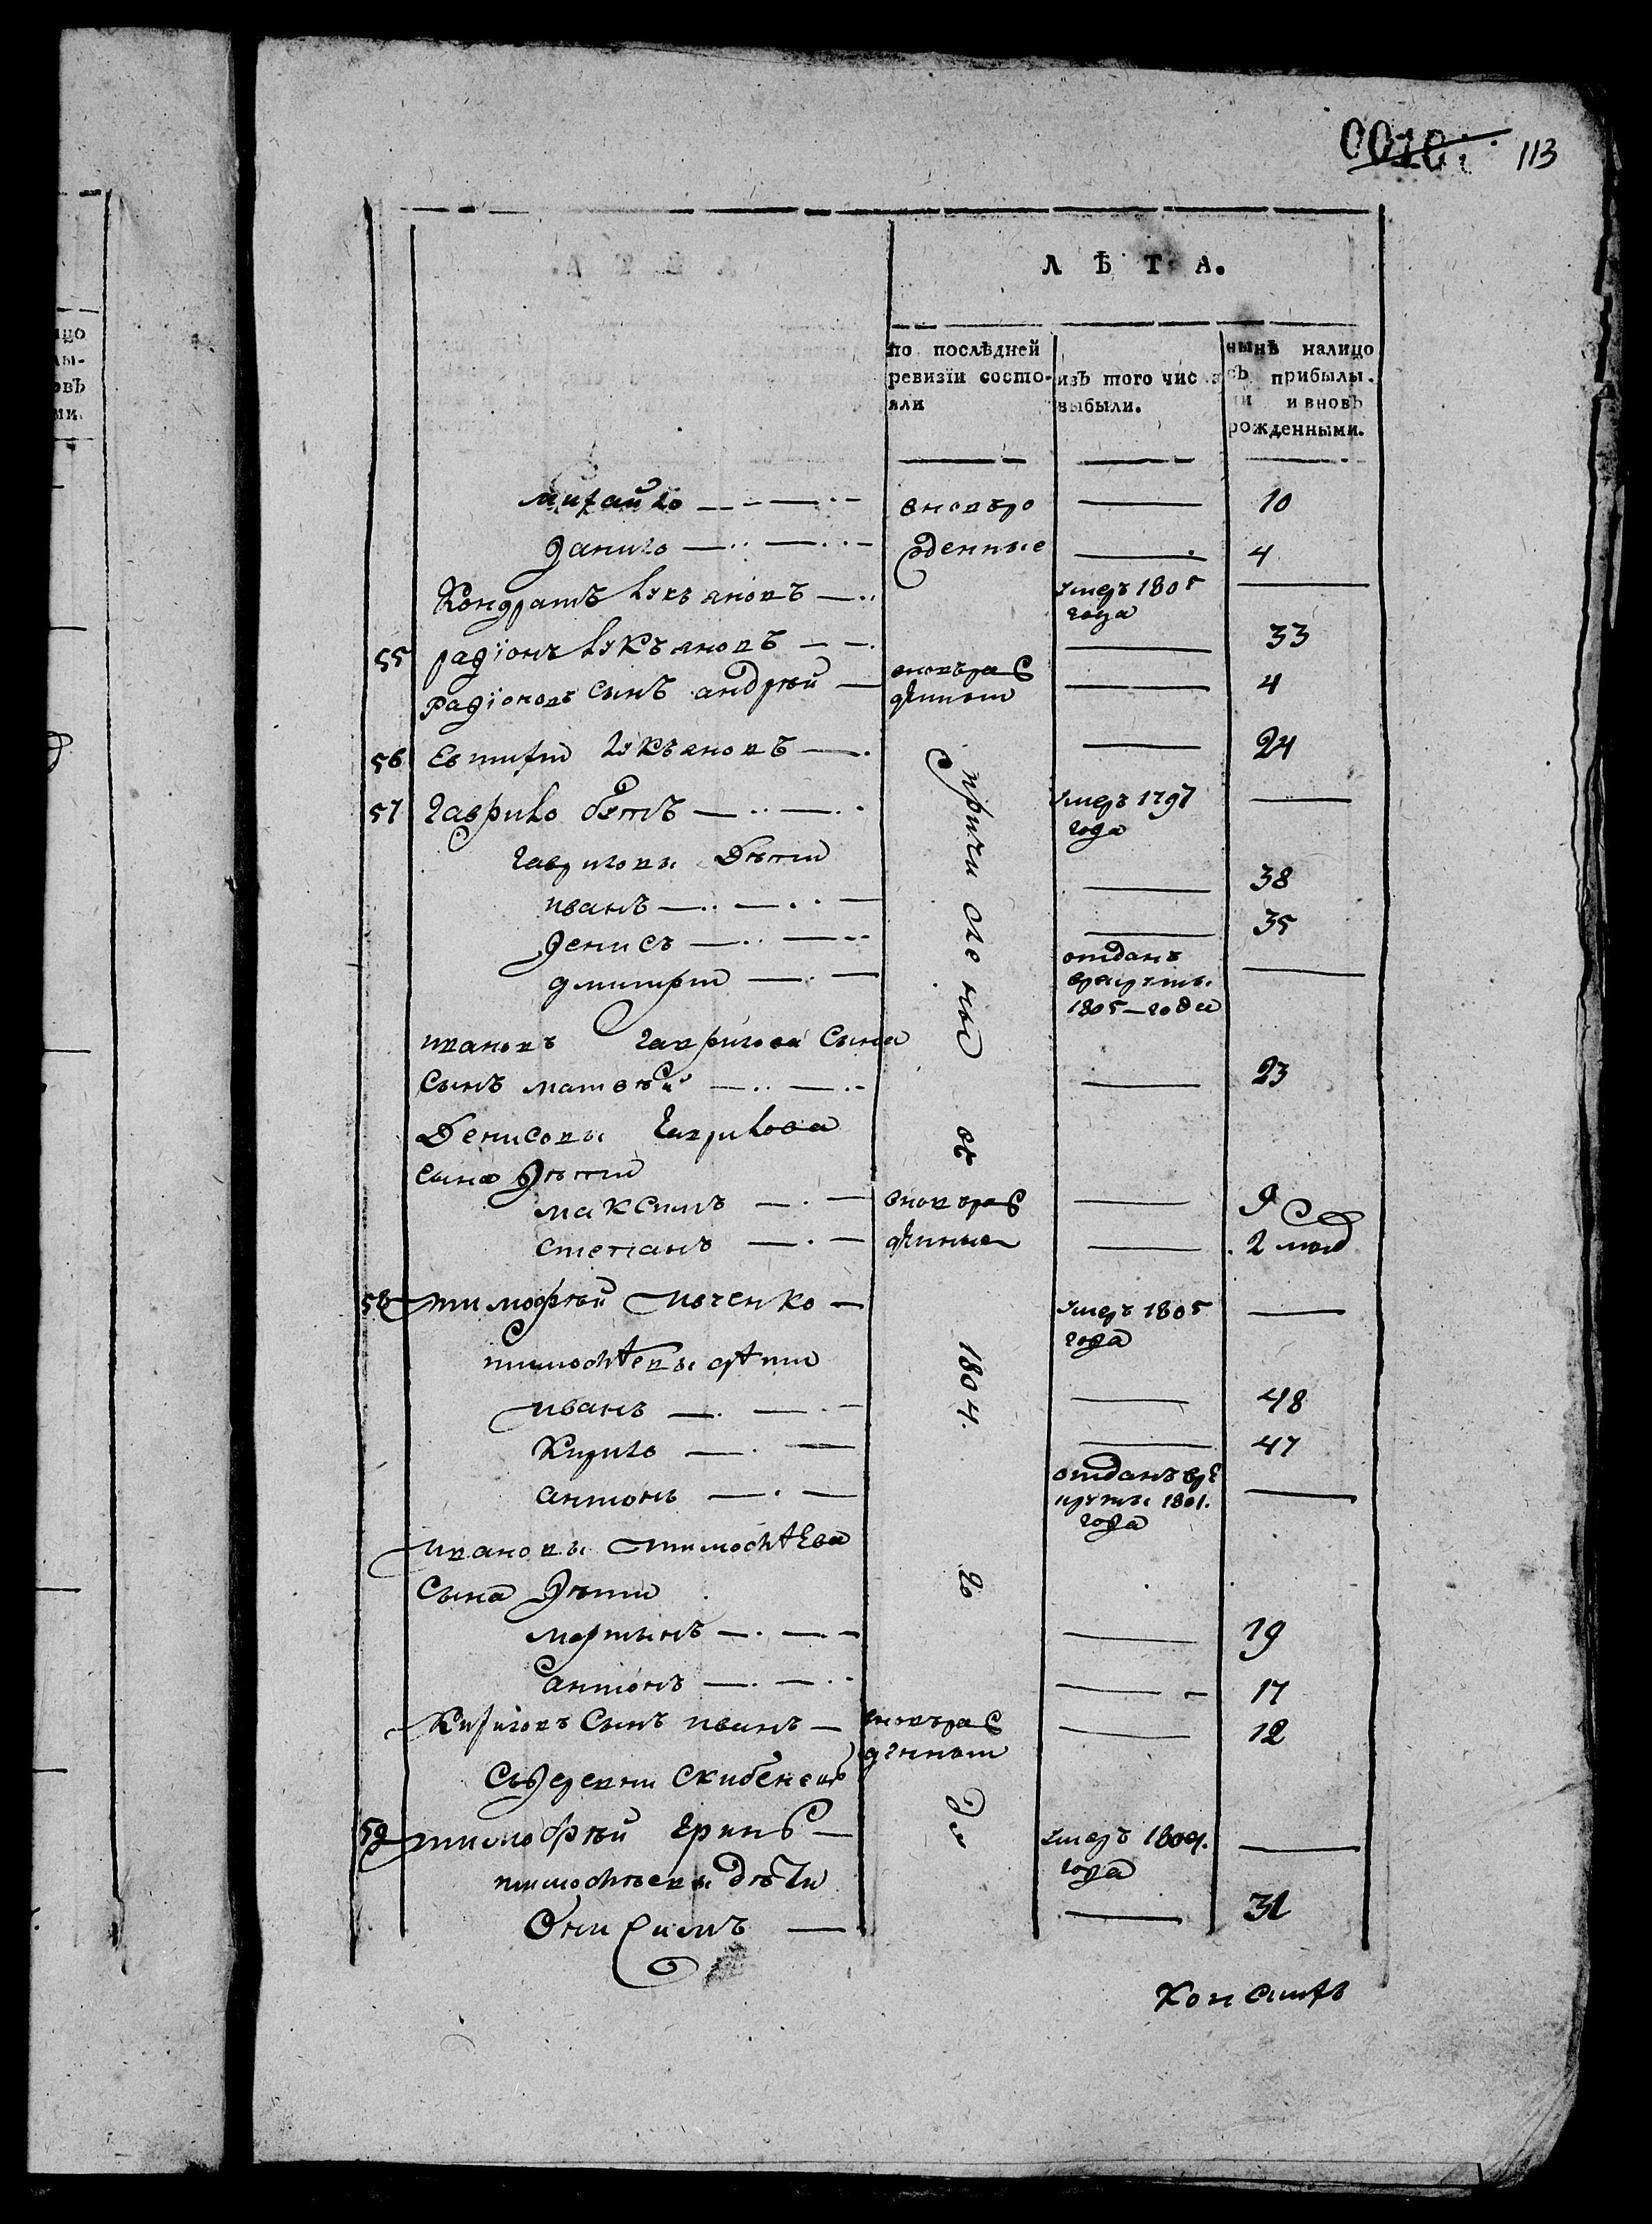 113
Л Ѣ Т А.
по послѣдней
ревизїи состо-
яли
изъ того числа
выбыли.
нынѣ налицо
съ прибылы.
ми и вновь
рожденными.
михайло вновьро 10
данило жденные 4
Кондратъ лукьяновъ умеръ 1805
года
55 радїонъ лукъяновъ 33
радїоновъ сынъ андрѣй вновьраж 4
56 лукъяновъ 24
причислены съ 1804. го
57 гаврило умеръ 1797
года
гавриловы Дѣти
иванъ 38
денисъ 35
дмитрей отданъ
врекруты
1805 года
ивановъ гаврилова Сына
Сынъ матвѣй 23
Денисовы гаврилова
сына дѣти
максимъ вновьраж 9
степанъ денные 2
58 тимофѣй умеръ 1805
года
тимофѣевы дѣти
иванъ 48
Кирило 47
антонъ отданъ вре
круты 1801.
года
ивановы тимофѣева
Сына дѣти
мартынъ 19
антонъ 17
Кириловъ Сынъ иванъ вновьраж 12
денной
59 тимофѣй умеръ
года
тимофѣевы дѣти
Онисимъ 31